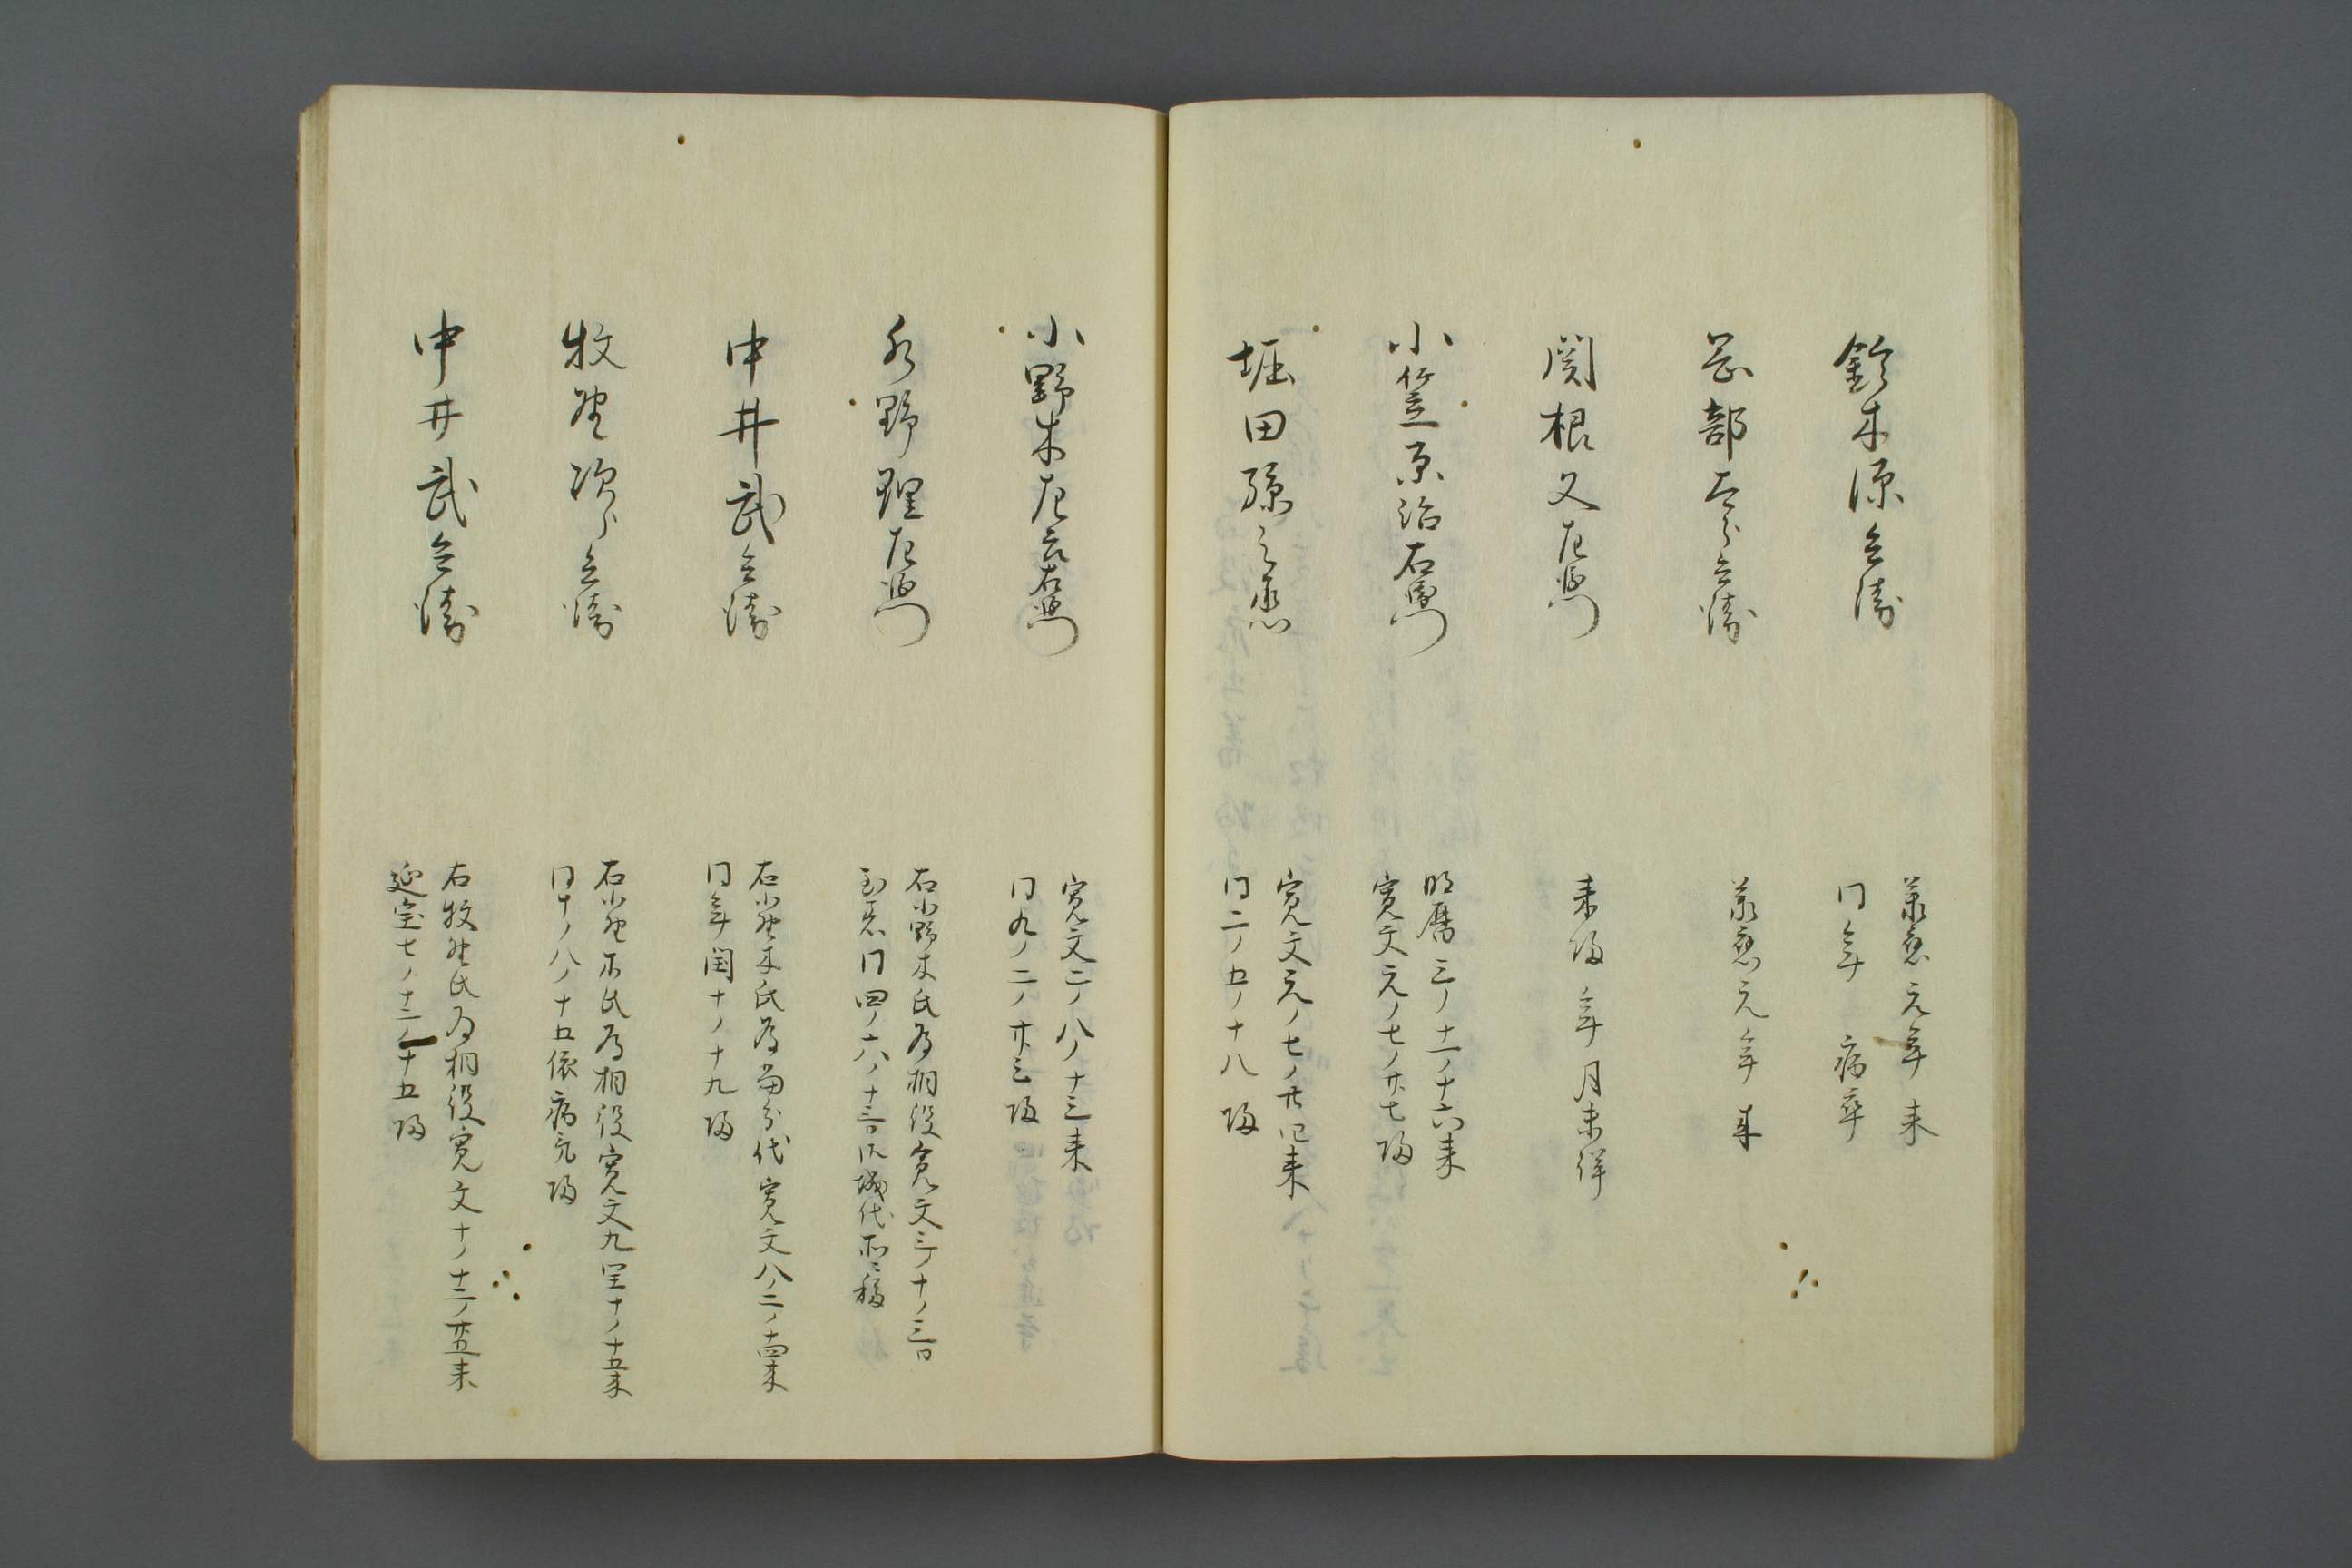 鈴木源兵衛
承應元年来
同年 病卒
岡部太郎兵衛
承應元年来
関根又左衛門
来帰年月未詳
小笠原治右衛門
明暦三ノ十一ノ十六来
寛文元ノ七ノ廿七帰
堀田孫之丞
寛文元ノ七ノ廿四来
同二ノ五ノ十八帰
小野木左次右衛門
寛文二ノ八ノ十三来
同九ノ二ノ廿三帰
水野理左衛門
右小野木氏為相役寛文三ノ十ノ三日
到着同四ノ六ノ十三日御城代所ニ移
中井武兵衛
右小野木氏為当分代寛文八ノ二ノ十四来
同年閏十ノ十九帰
牧野次郎兵衛
右小野木氏為相役寛文九閏十ノ十五来
同十ノ八ノ十五依病気帰
中井武兵衛
右牧野氏為相役寛文十ノ十二ノ廿五来
延宝七ノ十二ノ十五帰